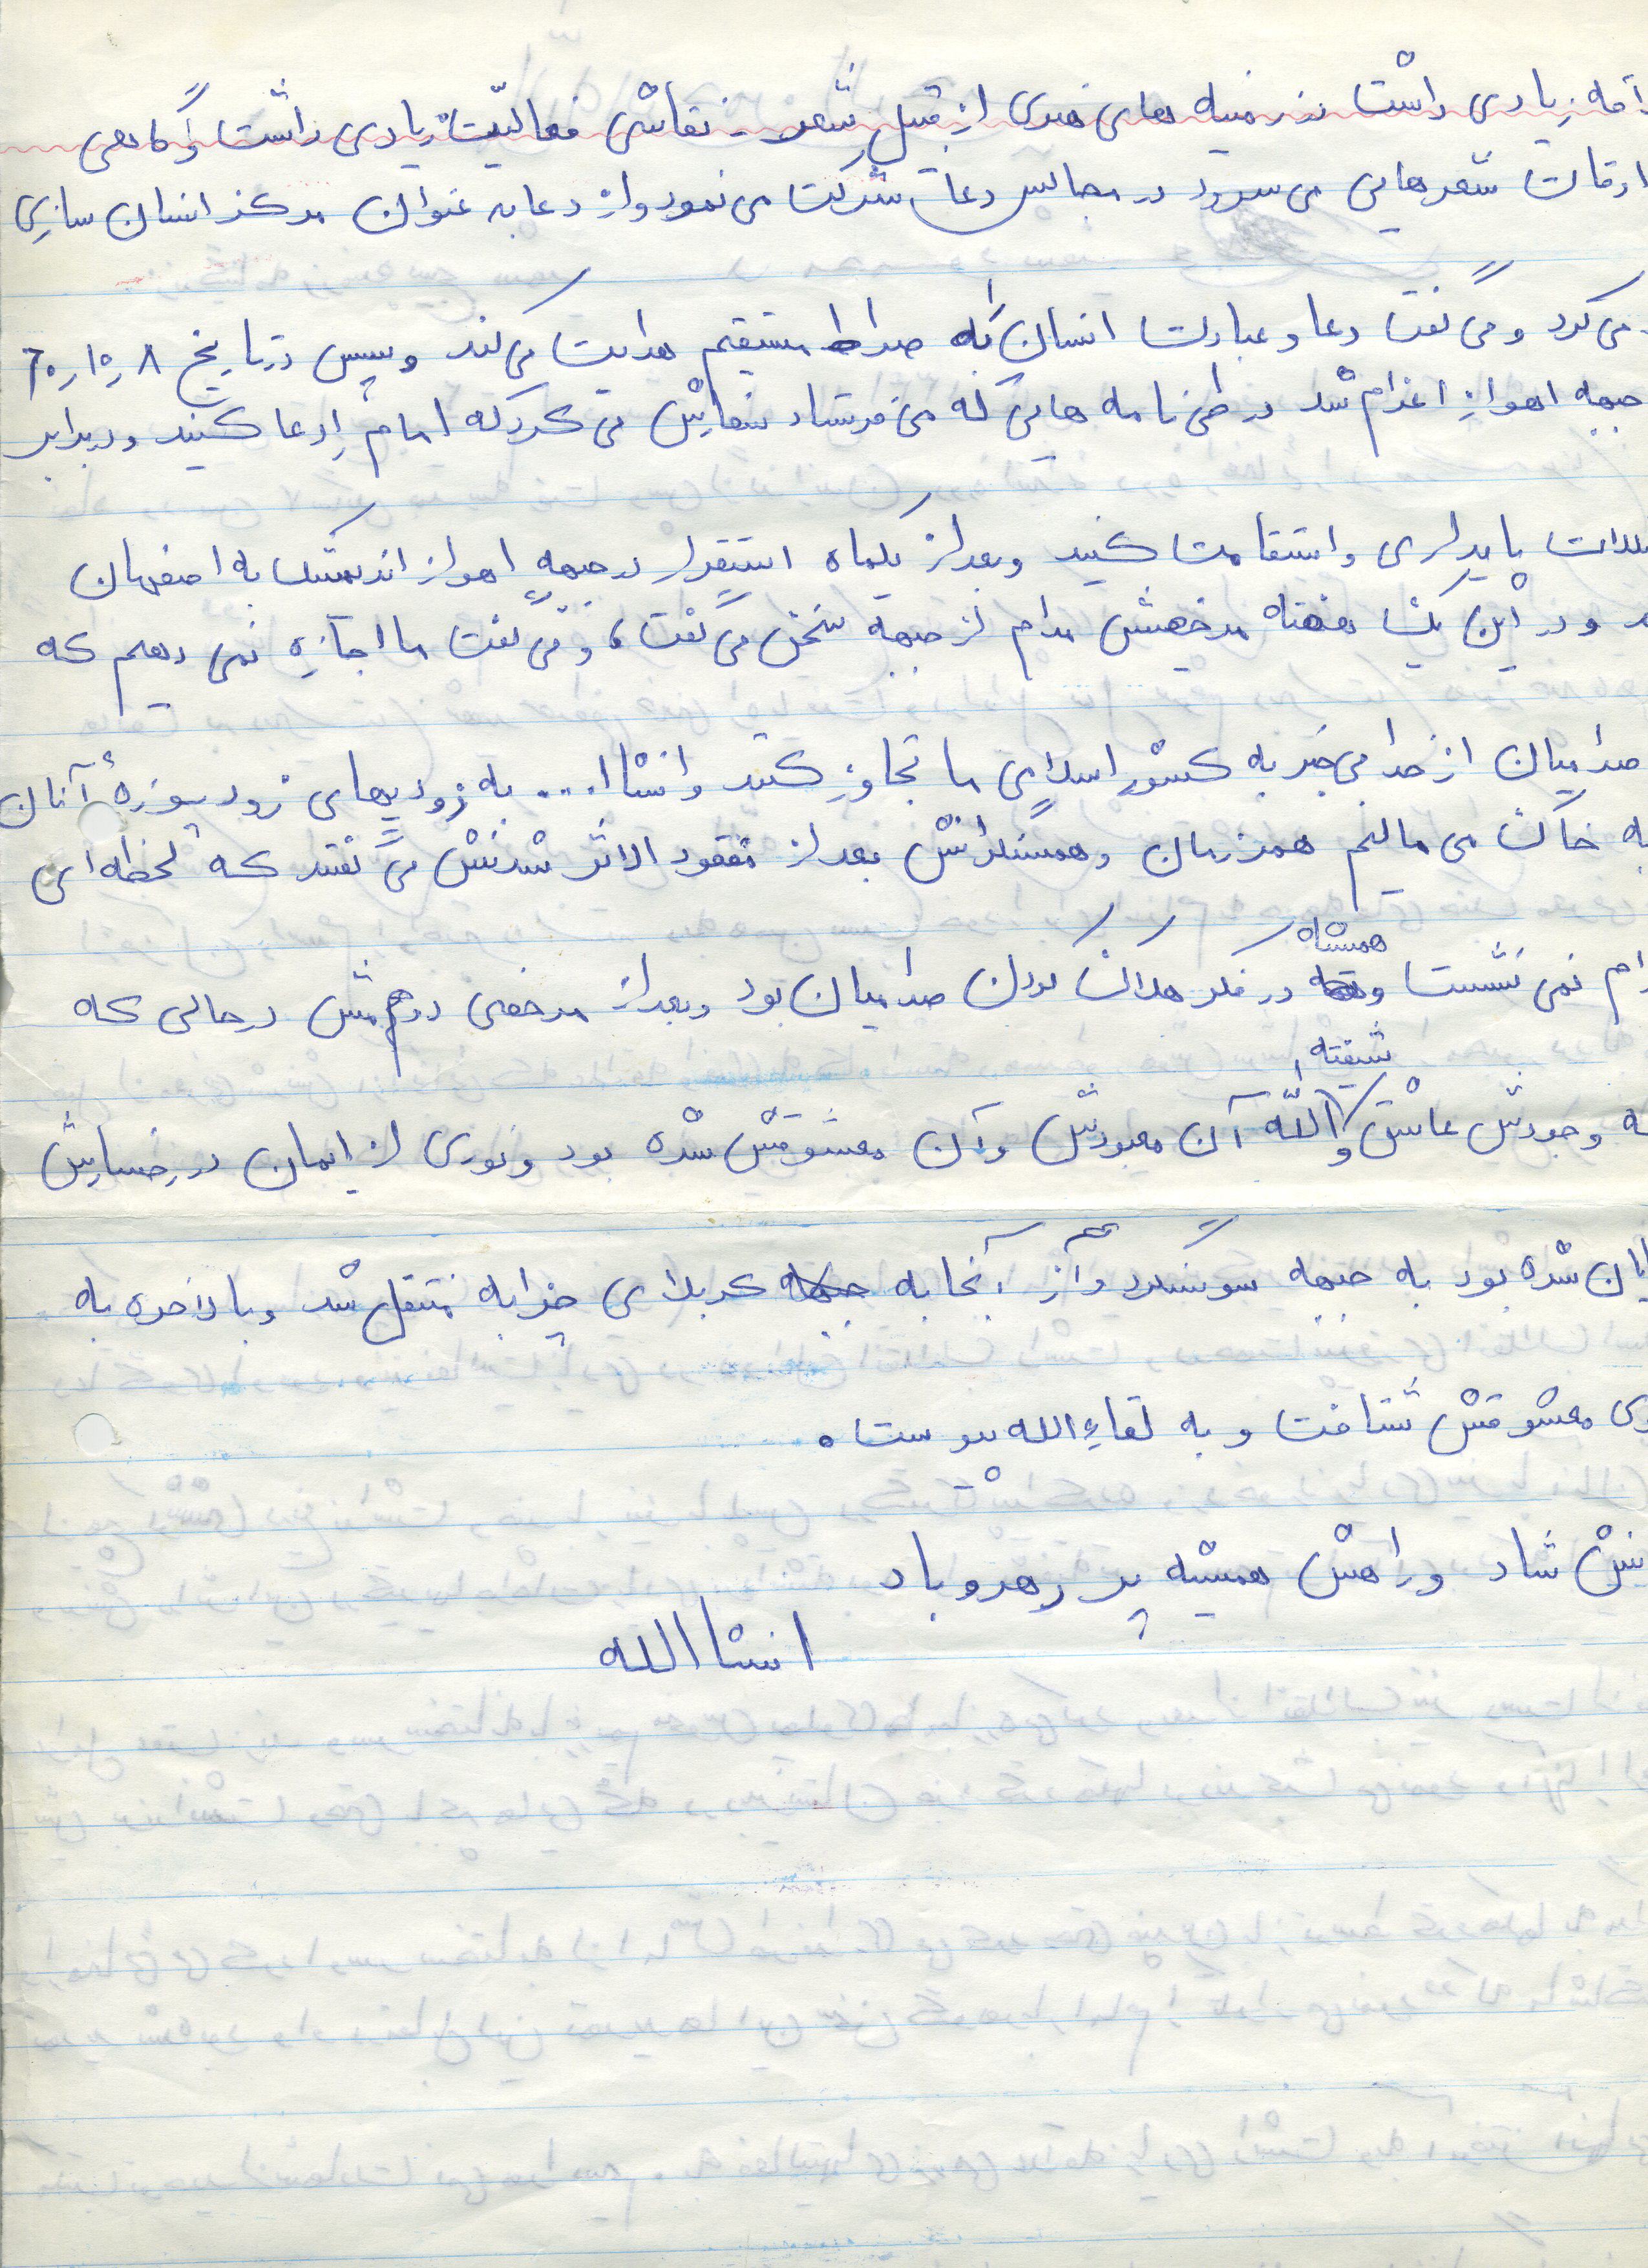 زیادی داشت در زمینه های هنری از قبیل شعر - نقاشی فعالیّت زیادی داشت و گاهی
اوقات شعرهایی می سرود در مجالس دعا شرکت می نمود و از دعا به عنوان مرکز انسان سازی
می کرد و می گفت دعا و عبادت انسان را به صراط مستقیم هدایت می کند و سپس در تاریخ
جبهه اهواز اعزام شد در طی نامه هایی که می فرستاد سفارش می کرد که امام را دعا کنید و در برابر
پایداری و استقامت کنید و بعد از یکماه استقرار در جبهه اهواز اندیمشک به اصفهان
و در این یک هفته مرخصیش مدام از جبهه سخن می گفت، و می گفت ما اجازه نمی دهیم که
صدامیان از خدا بی خبر به کشور اسلامی ما تجاوز کنند و انشاا... به زودیهای زود پوزهٔ آنان
به خاک می مالیم همرزمان و همسنگرانش بعد از مفقود الاثر شدنش می گفتند که لحظه ای
نمی نشست و همیشه در فکر هلاک کردن صدامیان بود و بعد از مرخصی دومش در حالی که
وجودش عاشق و شیفته اللّه آن معبودش و آن معشوقش شده بود و نوری از ایمان در رخسارش
شده بود به جبهه سوسنگرد و از آنجا به کربلای چزابه منتقل شد و بالاخره به
معشوقش شتافت و به لقاءالله پیوست.
شاد و راهش همیشه پر رهرو باد
انشاالله